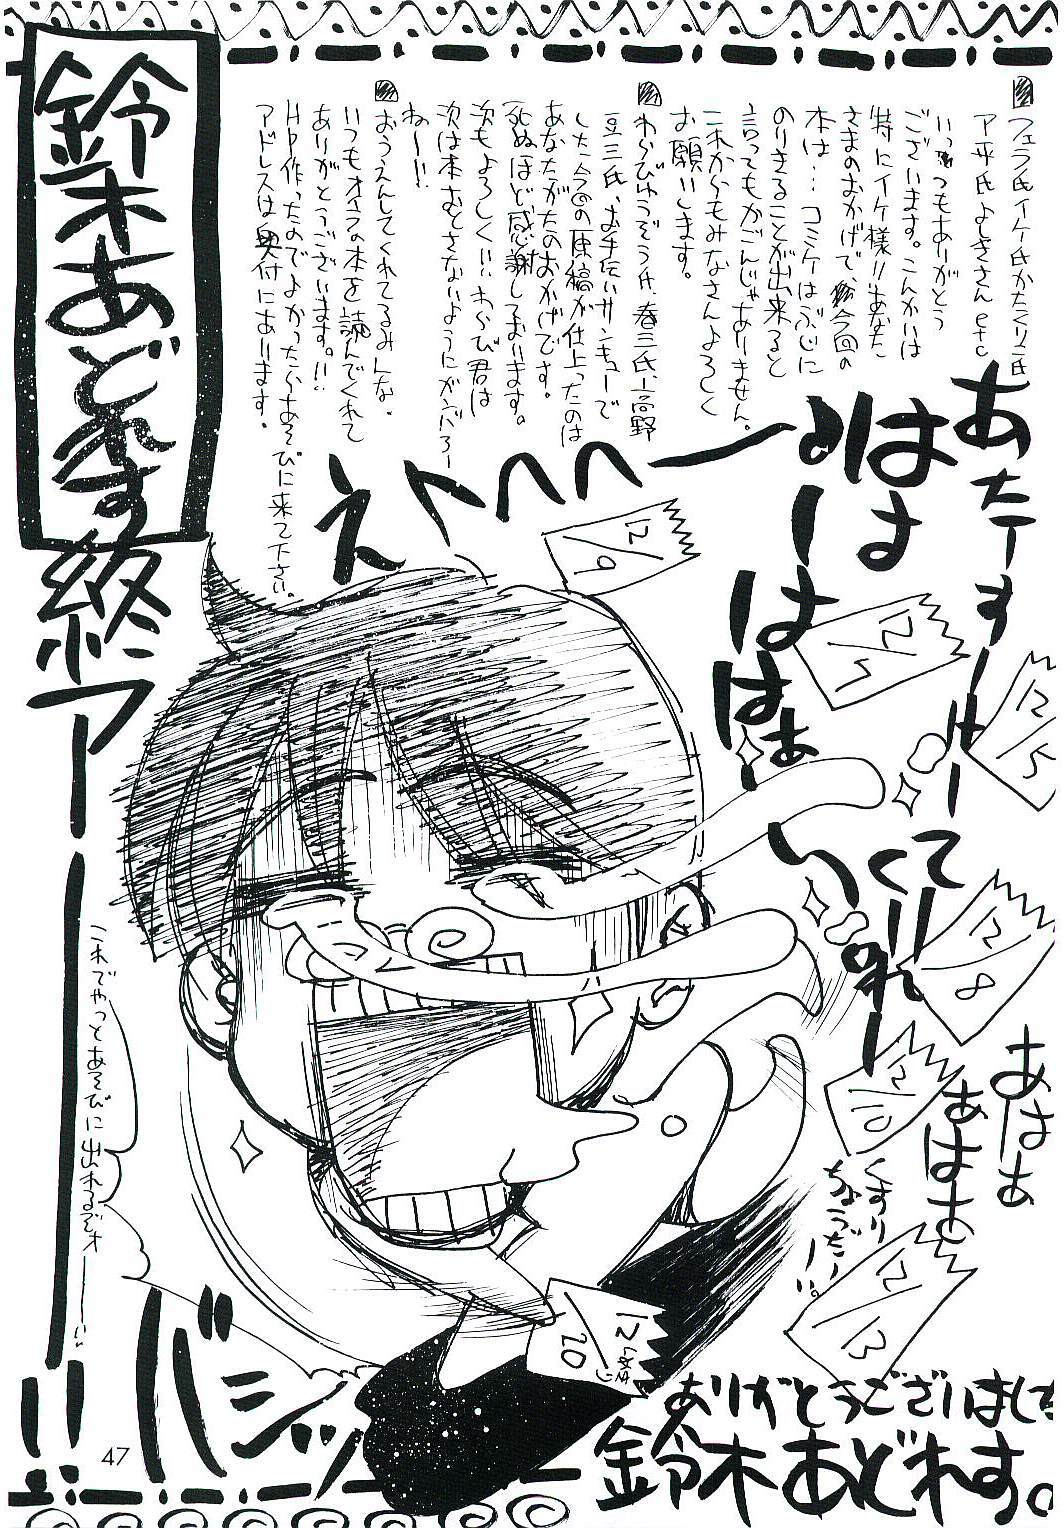 フェラ氏イケ氏かたくり氏
ア平氏よしきさんetc
いつもありがとう
ございます。こんかいは
特にイケ様!!あなた
さまのおかげで今回の
本は…コミケはぶじに
のりきることが出来ると
言ってもかごんじゃありません。
これからもみなさんよろしく
お願いします。
わらびゅうぞう氏、春三氏、高野
豆三氏、お手伝いサンキューで
した今回の原稿が仕上ったのは
あなたがたのおかげです。
死ぬほど感謝しております。
次もよろしくい、わらび君は
次は本おとさないようにガンバろー
ねー!!
おうえんしてくれてるみんな.
いつもオイラの本を読んでくれて
ありがとうございます。!!
HP作ったのでよかったらあそびに来て下さい。
アドレスは奥付にあります.
鈴木あどれす
終
アーーー!!
あたーすーけーてーくれー
ははははははぁ
いーのれー
えへへへー
あはぁ
あはぁ
くすり
ちょうだーい。
12/9
12/5
12/5
12/8
12/10
12/13
12/20
しめきり
これでやっとあそびに出れるぞォーーい!!
バシッ
ありがとうございました
鈴木あどれす。
47